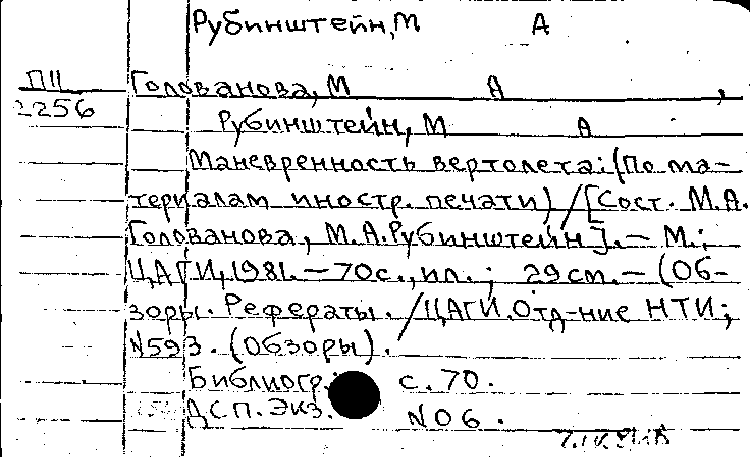 Рубинштейн, М А
ПЦ Голованова, М А ,
2256 Рубинштейн, М А
Маневренность вертолета: (По ма-
териалам иностр. печати) / [Сост. М.А.
Голованова, М.А. Рубинштейн]. – М.;
ЦАГИ, 1981. – 70с., ил.; 29 см. – (Об-
зоры. Рефераты. / ЦАГИ. Отд-ние НТИ;
№593. (Обзоры).
Библиогр.: с. 70.
ДСП. Экз. №06.